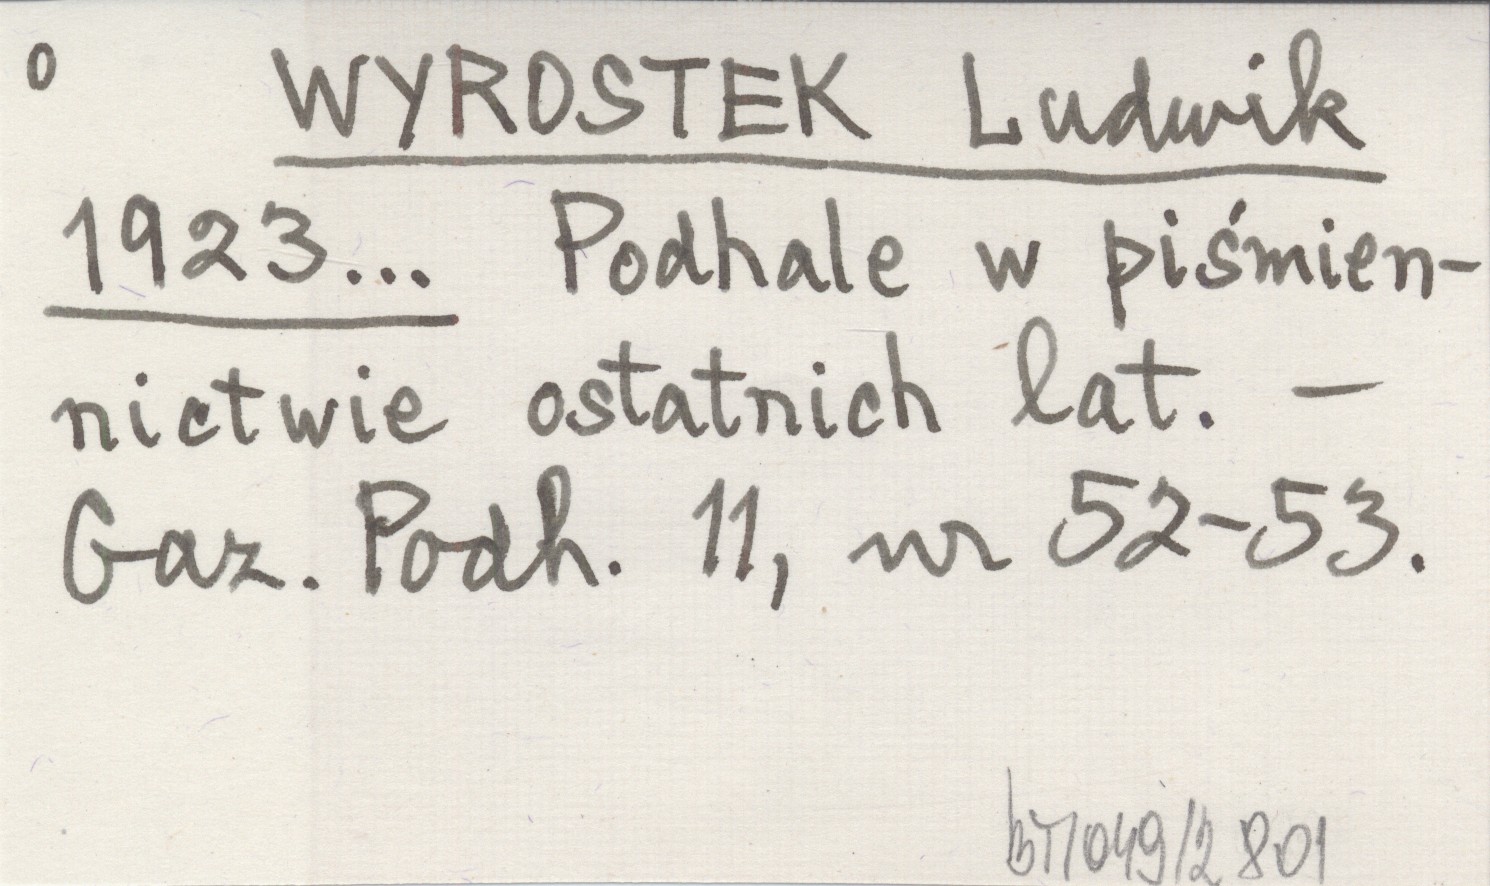 o WYROSTEK Ludwik
1923... Podhale w piśmien-
nictwie ostatnich lat. –
Gaz. Podh. 11, nr 52-53.
bT/049/2 801